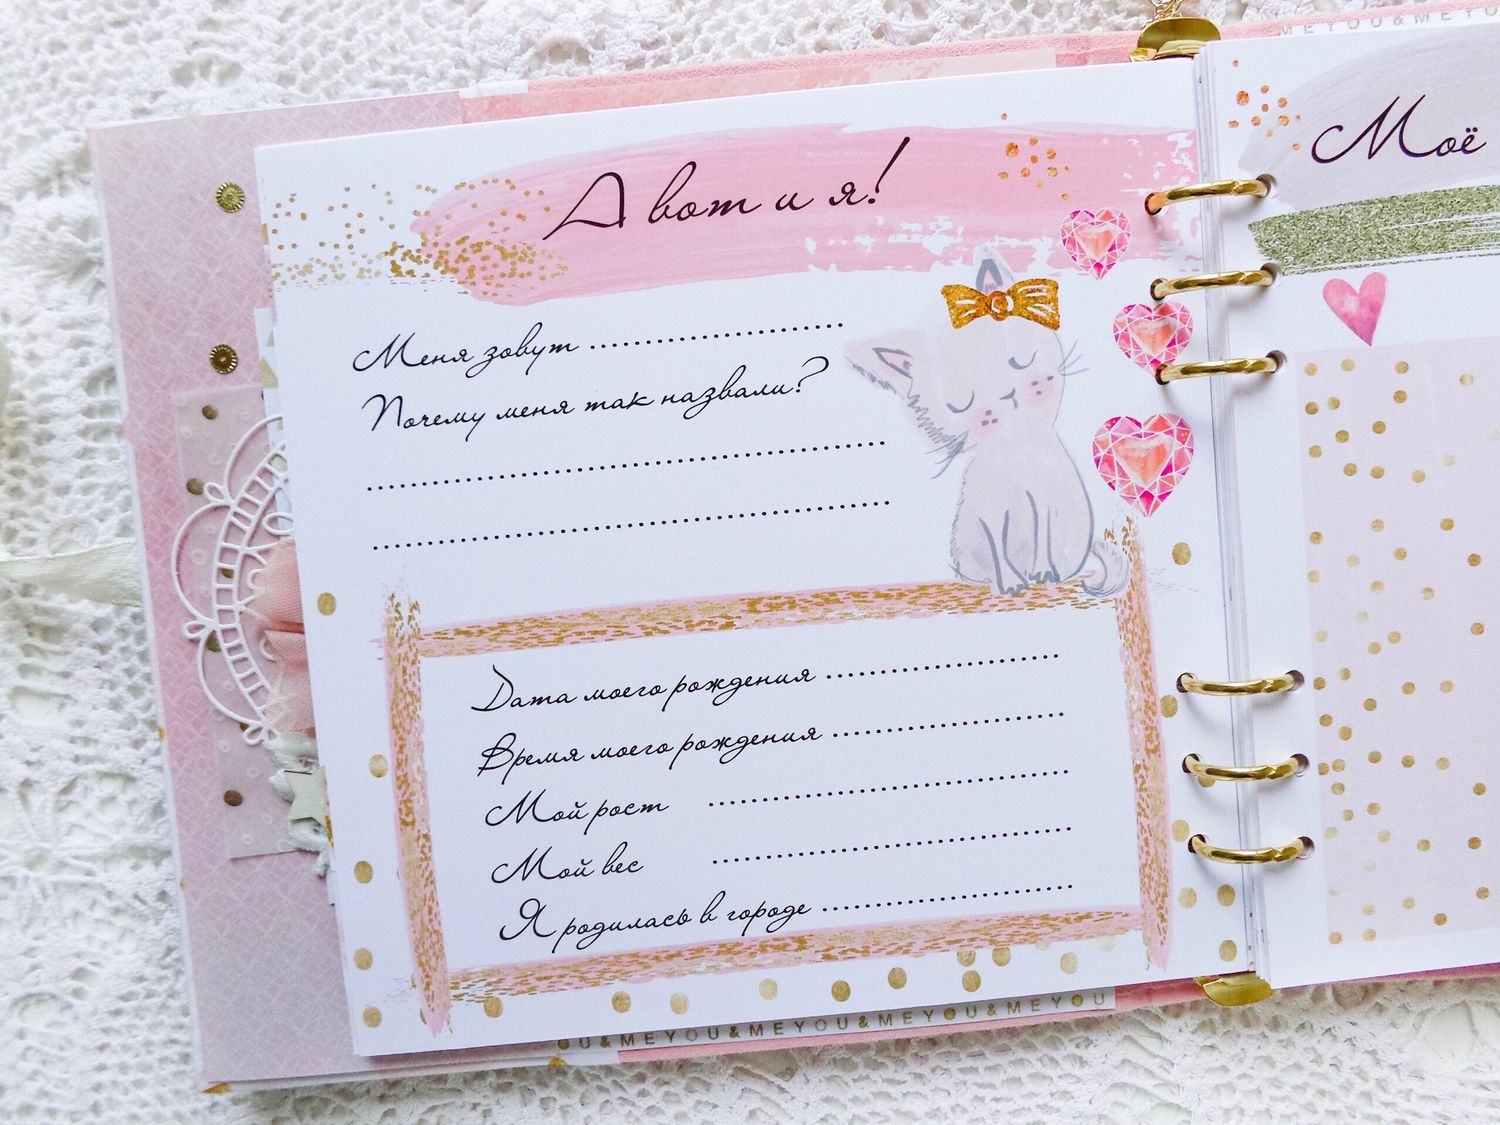 А вот и я!
Меня зовут
Почему меня так назвали?
Дата моего рождения
Время моего рождения
Мой рост
Мой вес
Я родилась в городе
OU&MEYOU&MEYOU&MEYOU&MEYOU
MEYOU&MEYO
Моё